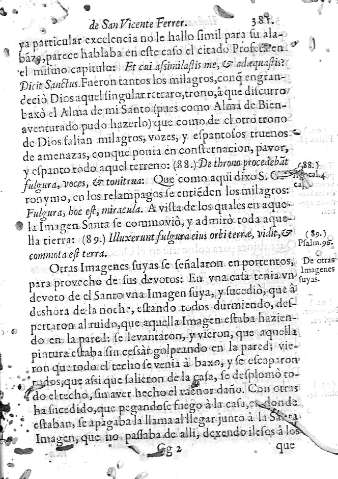 de San Vicente Ferrer. 381.
ya particular excelencia no le hallo simil para su ala-
bazo, parece hablaba en este caso el citado Profeta en
el mismo capitulo: Et cui assimilastis me, & adæquastis?
Dicit Sanctus. Fueron tantos los milagros, conq̃ engran-
deciò Dios aquel singular retrato, trono, à que discurro
baxò el Alma de mi Santo (pues como Alma de Bien-
aventurado pudo hazerlo) que como de el otro trono
de Dios salian milagros, vozes, y espantosos truenos
de amenazas, con que ponia en consternacion, pavor,
y espanto todo aquel terreno: (88.) De throno procedebãt
fulgura, voces, & tonitrua: Que como aqui dixo S. G
ronymo, en los relampagos se entiẽden los milagros:
Fulgura, hoc est, miracula. A vista de los quales en aque-
lla Imagen Santa se commoviò, y admirò toda aque-
lla tierra: (89.) Illuxerunt fulgura eius orbi terræ, vidit, &
commota est terra.
(88.)
(89.)
Psalm. 96.
Otras Imagenes suyas se señalaron en portentos,
para provecho de sus devotos: En vna casa tenia vn
devoto de el Santo vna Imagen suya, y sucediò, que à
deshora de la noche, estando todos durmiendo, des-
pertaron al ruido, que aquella Imagen estaba hazien-
do en la pared: se levantaron, y vieron, que aquella
pintura estaba sin cessar golpeando en la pared: vie-
ron que todo el techo se venia à baxo, y se escaparon
todos, que asi que salieron de la casa, se desplomò to-
do el techo, sin aver hecho el menor daño. Con otras
ha sucedido, que pegandose fuego à la casa, en donde
estaban, se apagaba la llama al llegar junto à la Santa
Imagen, que no passaba de alli, dexando ilesos à los
De otras
Imagenes
suyas.
Gg 2 que